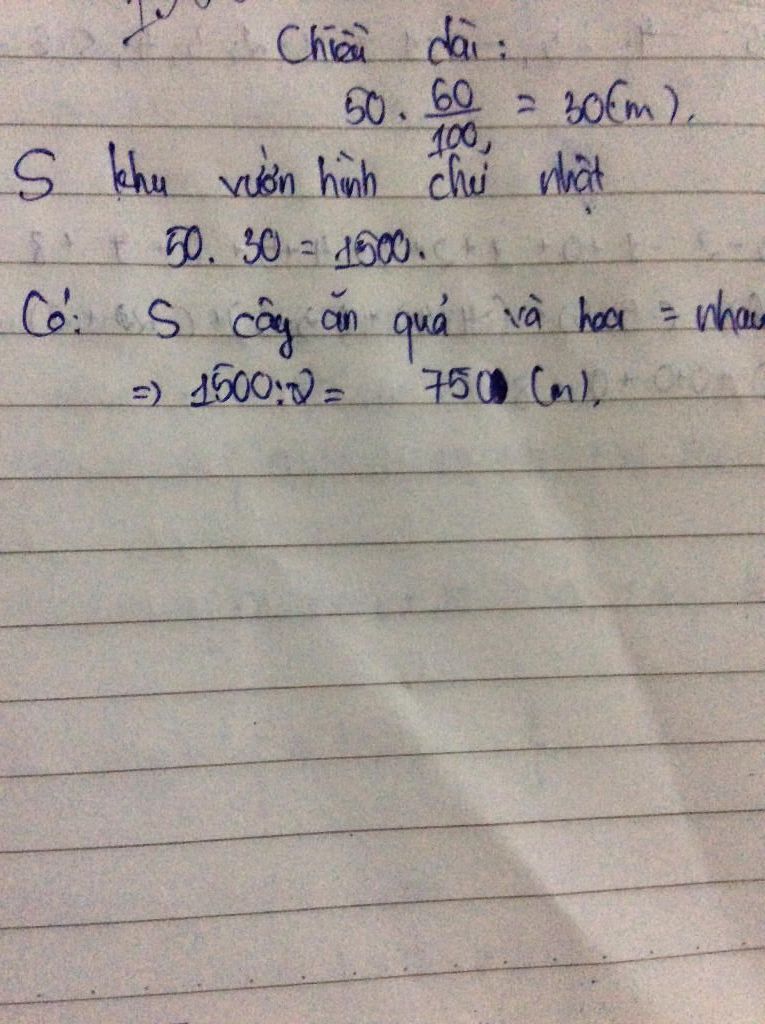 Chiều dài:
50 . 60/100 = 30(m).
S khu vườn hình chữ nhật
50. 30 = 1500.
Có: S cây ăn quả và hoa = nhau
=> 1500:2 = 750 (m).